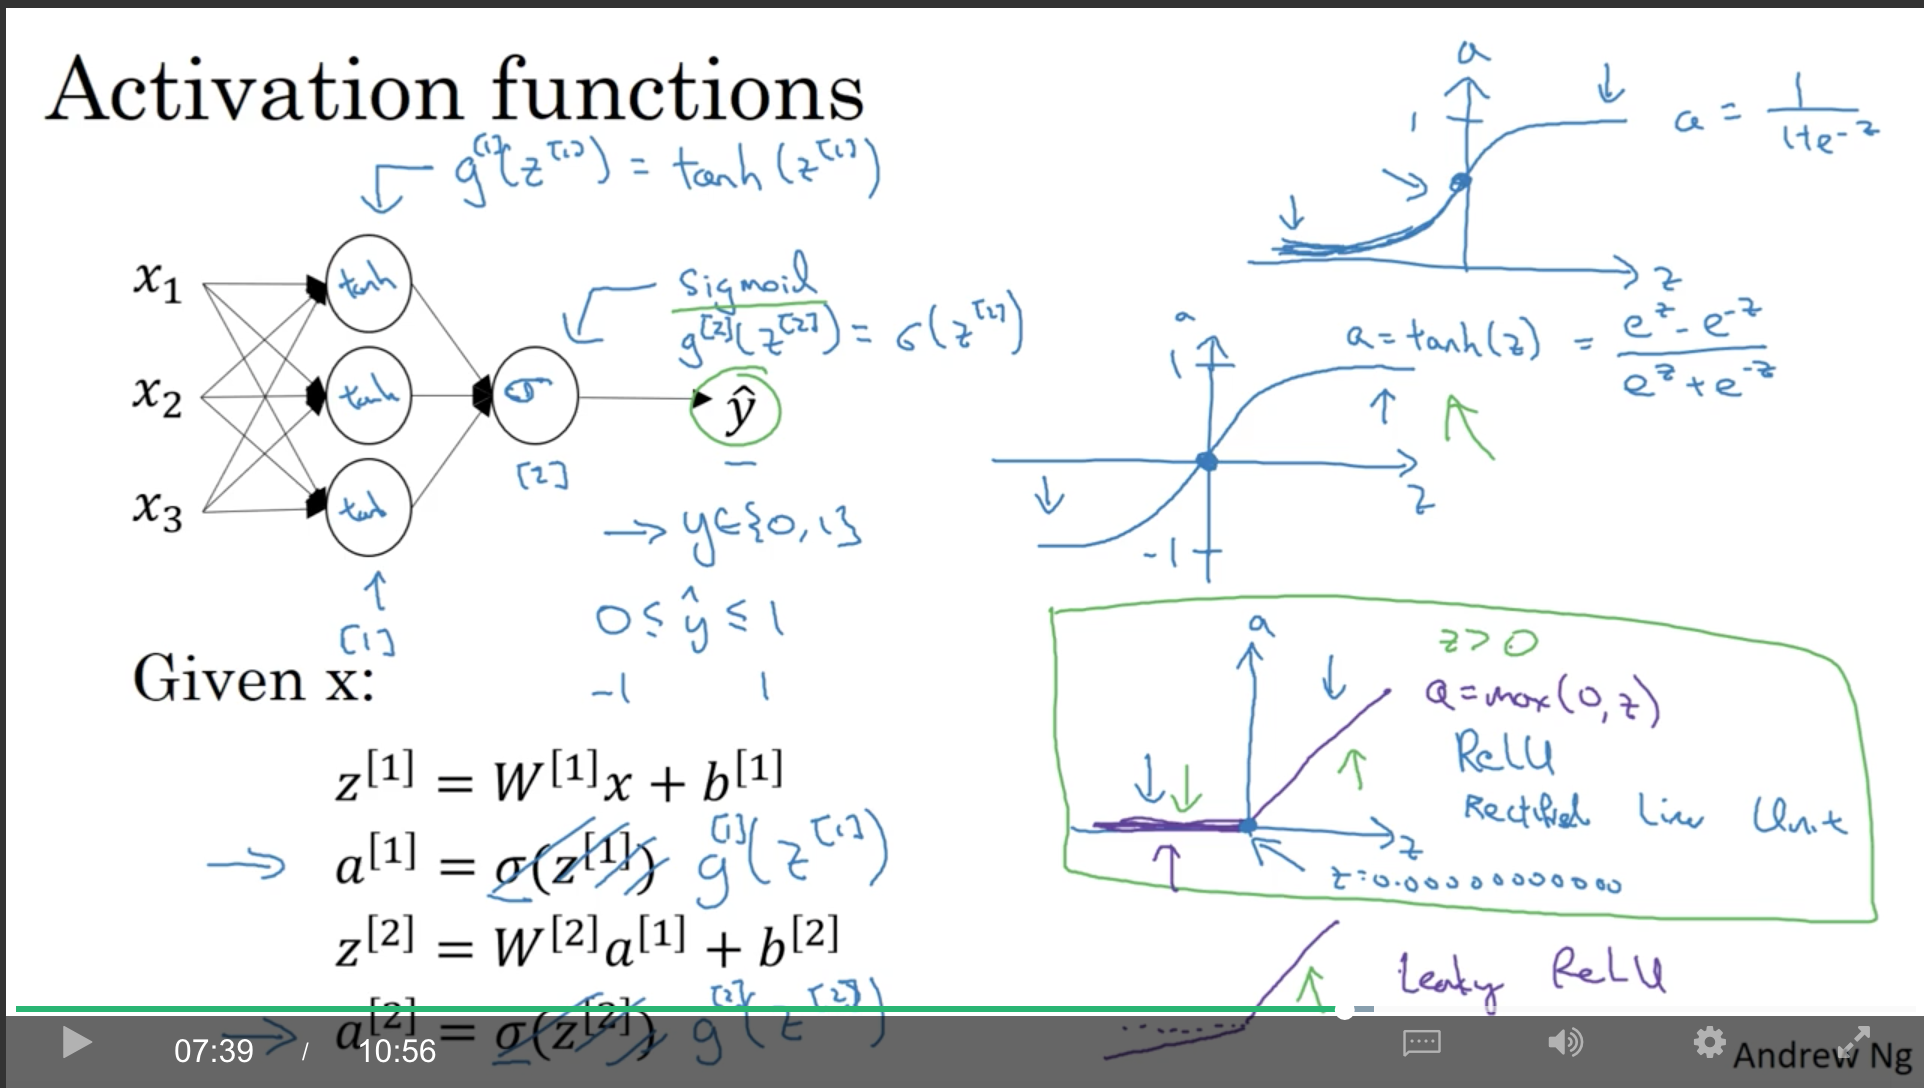 Activation functions
g^[1](z^[1]) = tanh(z^[1])
x₁
x₂
x₃
tanh
tanh
tanh
[1]
σ
[2]
Sigmoid
g^[2](z^[2]) = σ(z^[2])
ŷ
→ y∈{0,1}
0 ≤ ŷ ≤ 1
-1 1
Given x:
z^[1] = W^[1]x + b^[1]
→ a^[1] = σ(z^[1]) g^[1](z^[1])
z^[2] = W^[2]a^[1] + b^[2]
→ a^[2] = σ(z^[2]) g^[2](z^[2])
a
1
a = 1/(1+e^-z)
z
a
1
a = tanh(z) = (e^z - e^-z)/(e^z + e^-z)
z
-1
a
z > 0
a = max(0,z)
ReLU
Rectified Linear Unit
z
z=0.00000000000
Leaky ReLU
07:39 / 10:56
Andrew Ng